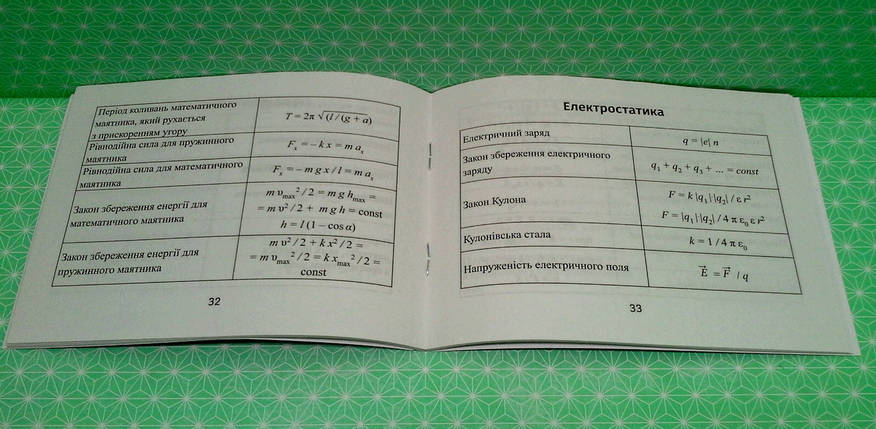 Період коливань математичного
маятника, який рухається
з прискоренням угору
T = 2π √(l / (g + a)
Рівнодійна сила для пружинного
маятника
Fₓ = – k x = m aₓ
Рівнодійна сила для математичного
маятника
Fₓ = – m g x / l = m aₓ
Закон збереження енергії для
математичного маятника
m υₘₐₓ² / 2 = m g hₘₐₓ =
= m υ² / 2 + m g h = const
h = l (1 – cos α)
Закон збереження енергії для
пружинного маятника
m υ² / 2 + k x² / 2 =
= m υₘₐₓ² / 2 = k xₘₐₓ² / 2 =
const
32
Електростатика
Електричний заряд
q = |e| n
Закон збереження електричного
заряду
q₁ + q₂ + q₃ + ... = const
Закон Кулона
F = k |q₁| |q₂| / ε r²
F = |q₁| |q₂| / 4 π ε₀ ε r²
Кулонівська стала
k = 1 / 4 π ε₀
Напруженість електричного поля
E⃗ = F⃗ / q
33